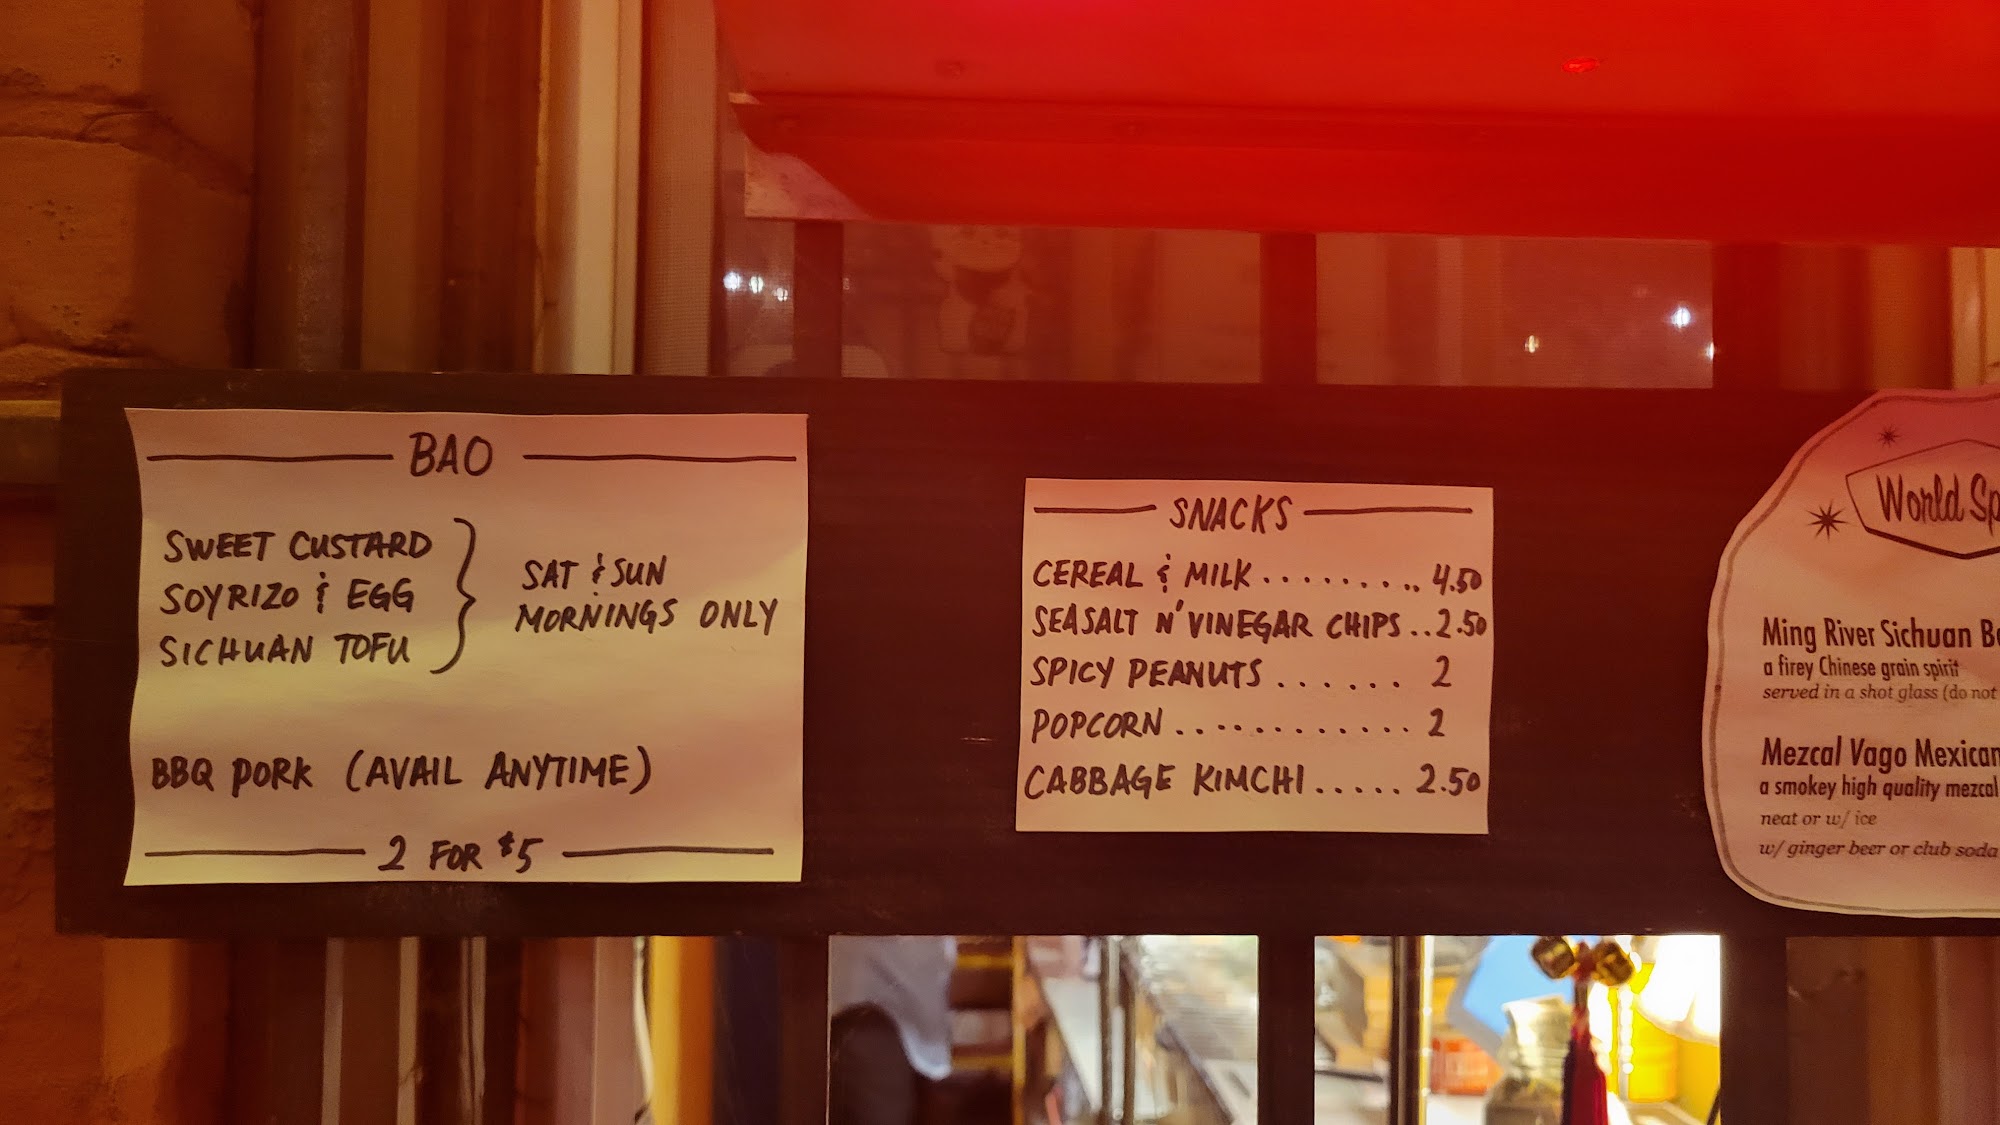 BAO
SWEET CUSTARD
SOYRIZO & EGG
SICHUAN TOFU
SAT & SUN
MORNINGS ONLY
BBQ PORK (AVAIL ANYTIME)
2 FOR $5
SNACKS
CEREAL & MILK.......... 4.50
SEASALT N' VINEGAR CHIPS..2.50
SPICY PEANUTS....... 2
POPCORN............ 2
CABBAGE KIMCHI..... 2.50
World Sp
Ming River Sichuan B
a firey Chinese grain spirit
served in a shot glass (do not
Mezcal Vago Mexican
a smokey high quality mezcal
neat or w/ ice
w/ ginger beer or club soda